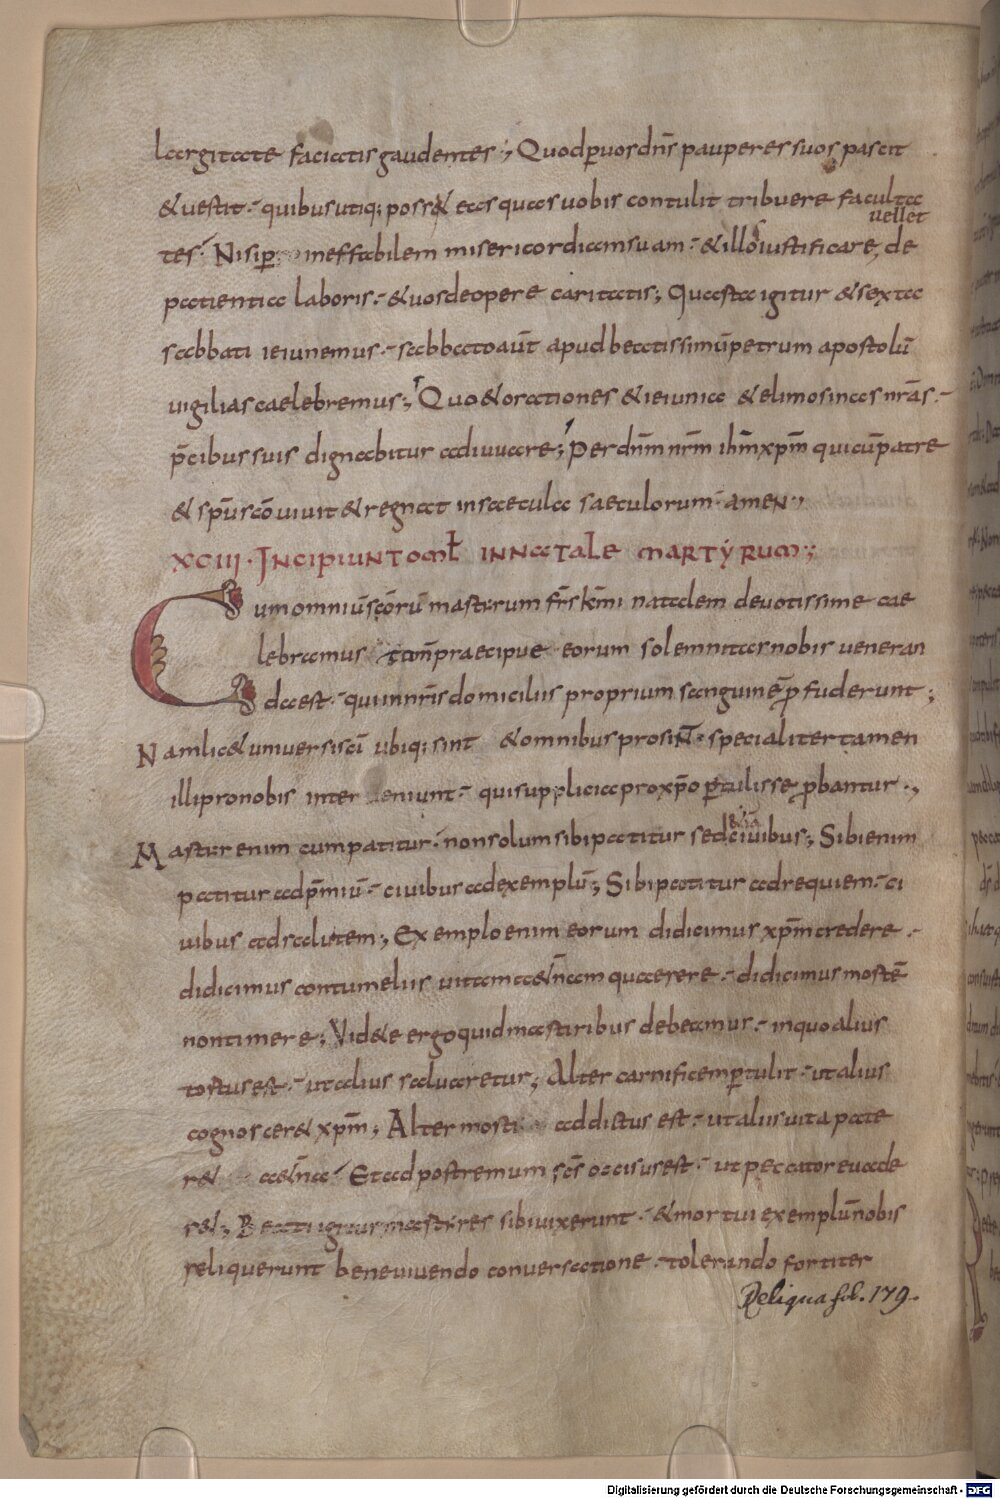 largitate faciatis gaudentes ; Quod p̄ uos dn̄s pauperes suos pascit
& uestit · quibus utiq; poss& eas quas uobis contulit tribuere faculta
uellet
tes · Nisi per ineffabilem misericordiam suam · & illos iustificare, de
patientia laboris · & uos de opere caritatis ; Quarta igitur & sexta
sabbati ieiunemus · sabbato aūt apud beatissimū petrum apostolū
uigilias caelebremus ; Quo & orationes & ieiunia & elimosinas nr̄as ·
p̄cibus suis dignabitur adiuuare ; Per dnm̄ nrm̄ ihm̄ xpm̄ qui cū patre
& spū sc̄o uiuit & regnat in saecula saeculorum · amen ·,
XCIII · INCIPIUNT OML̄ IN NATALE MARTYRUM ;
Cum omniū sc̄orū martirum fr̄s km̄i natalem deuotissime cae
lebramus tam̄ praecipue eorum solemnitas nobis ueneran
da est · qui in nr̄is domiciliis proprium sanguinē p̄fuderunt ;
Nam lic& uniuersi sc̄i ubiq; sint & omnibus prosint · specialiter tamen
illi pro nobis interueniunt · qui supplicia pro xp̄o pertulisse p̄bantur ·,
Martur enim cum patitur · non solum sibi patitur sed & ciuibus ; Sibi enim
patitur ad p̄miū · ciuibus ad exemplū ; Sibi patitur ad requiem · ci
uibus ad salutem ; Exemplo enim eorum didicimus xpm̄ credere ·
didicimus contumeliis uitam aet̄nam quaerere · didicimus mortē
non timere ; Vid&e ergo quid martiribus debeamus · in quo alius
tortus est · ut alius saluaretur ; Alter carnificem pertulit · ut alius
cognoscer& xpm̄ ; Alter morti addictus est · ut alius uita pate
r& aet̄na · Et ad postremum sc̄s occisus est · ut peccator euade
r&; Beati igitur martires sibi uixerunt · & mortui exemplū nobis
reliquerunt bene uiuendo conuersatione · tolerando fortiter
Reliqua fol. 179.
Digitalisierung gefördert durch die Deutsche Forschungsgemeinschaft - DFG